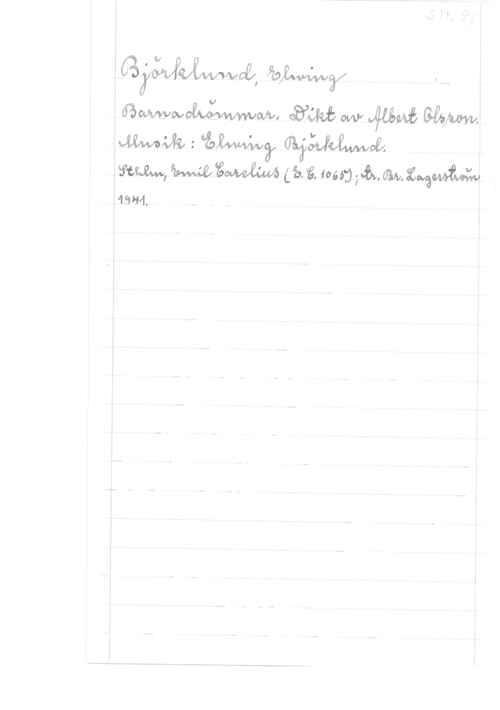 Björklund, Elwing
Barnadrömmar. Dikt av Albert Olszon.
Musik: Elwing Björklund.
Sthlm, Emil Carelius (E. C. 1065); tr. Br. Lagerström
1941.